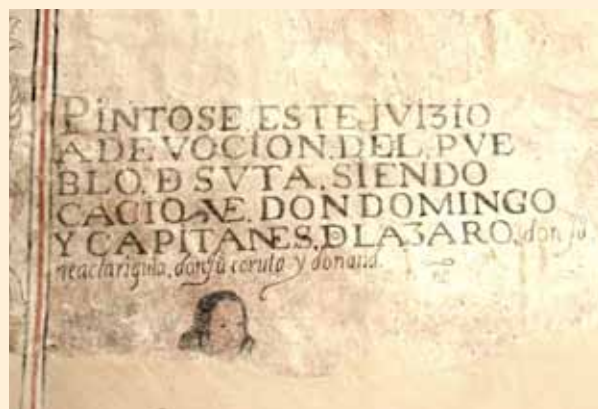 PINTOSE ESTE JVIZIO
A DEVOCION. DEL. PVE
BLO. Đ SVTA. SIENDO
CACIQVE. DON DOMINGO
Y CAPITANES. D. LAZARO. don jū.
neaclarigula, don jū coruta y don